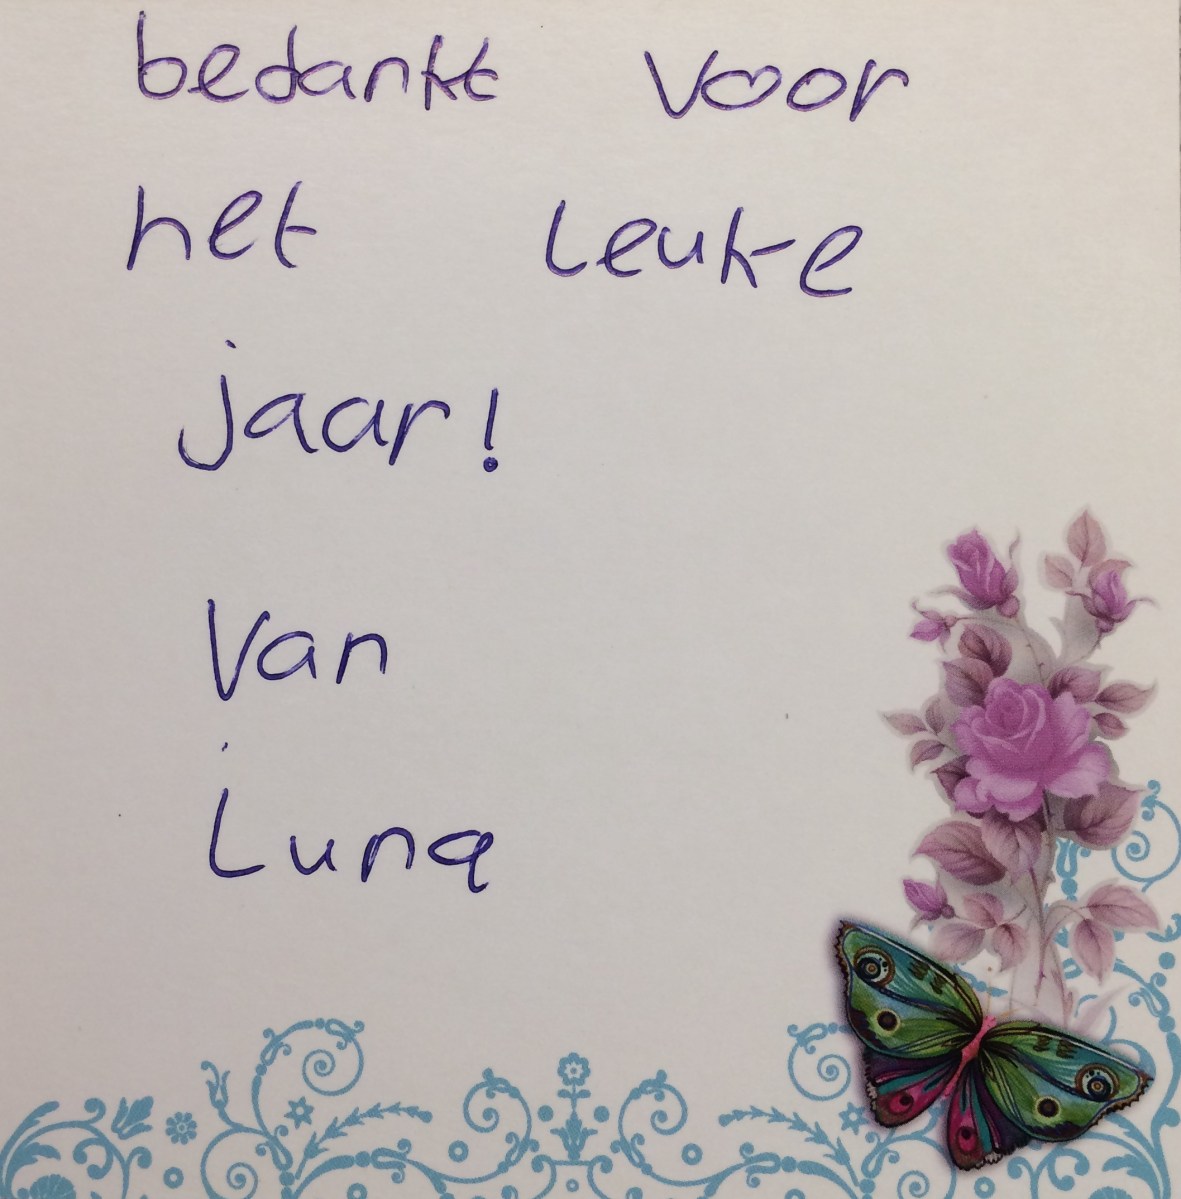 bedankt voor
het leuke
jaar!
Van
Luna